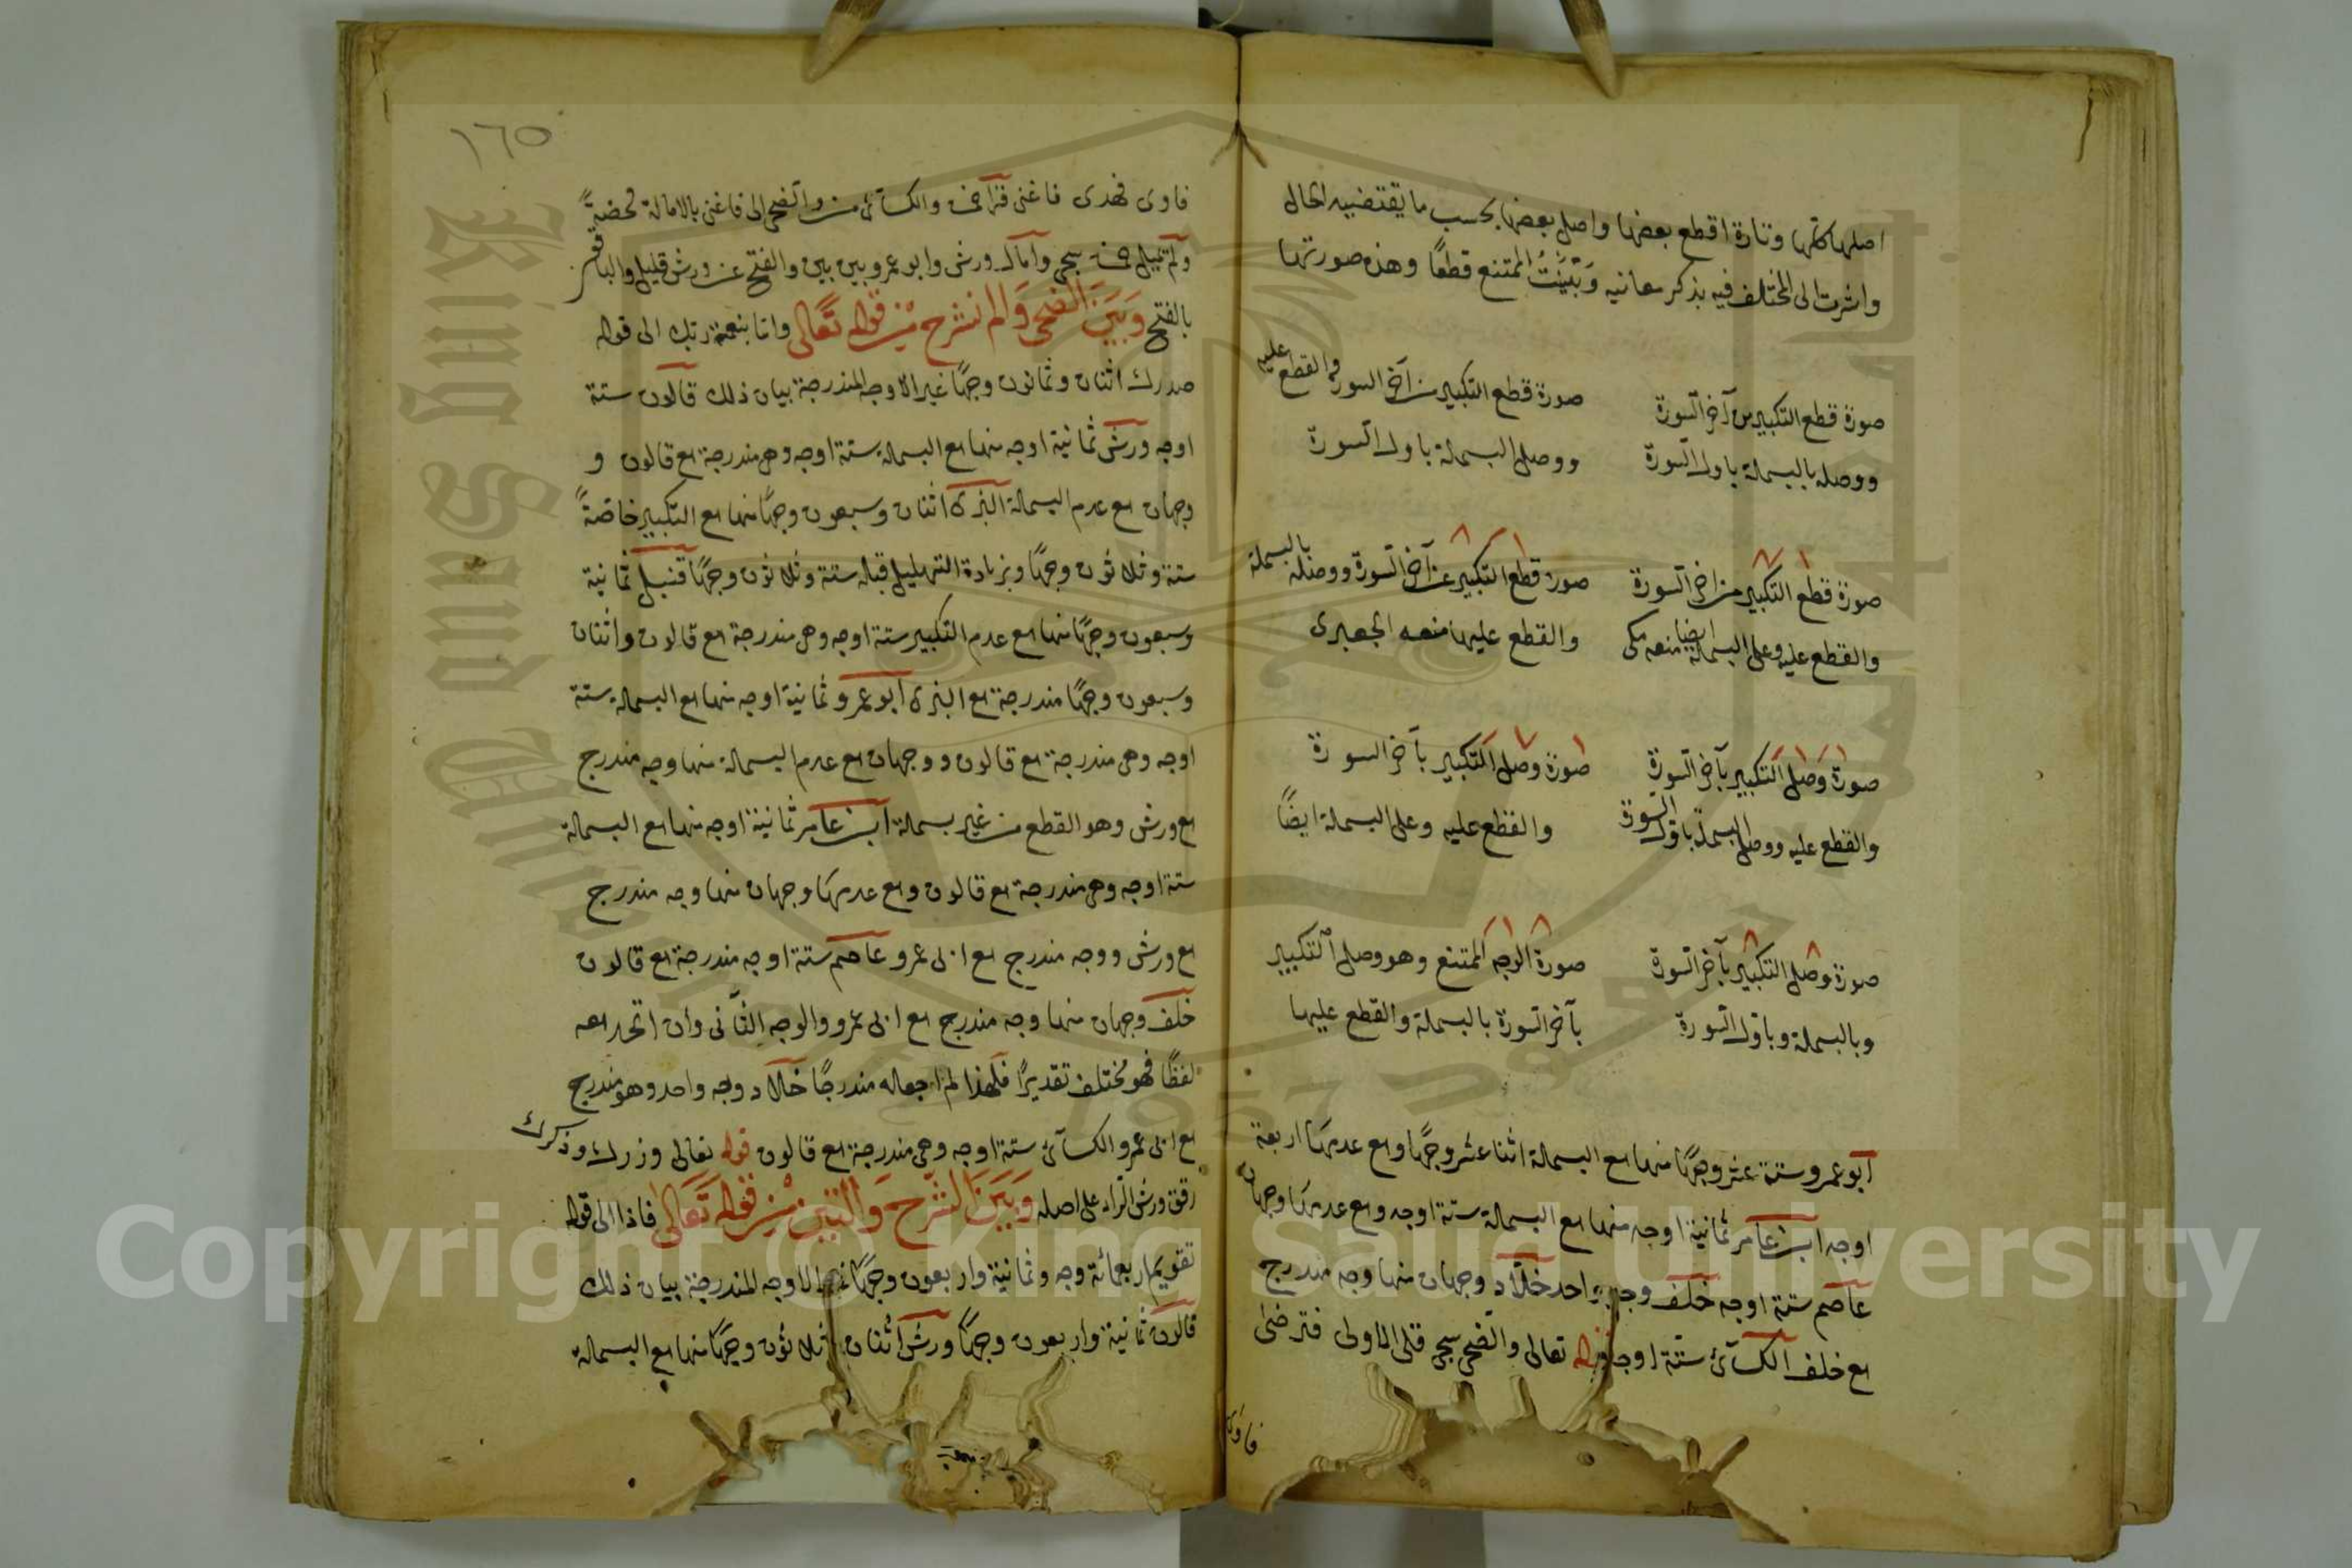 اصلها كلها وتارة اقطع بعضها واصل بعضها بحسب ما يقتضيه الحال
واشرت الى المختلف فيه بذكر معانيه وبينت الممتنع قطعا وهذه صورتها
صورة قطع التكبير من آخر السورة
ووصله بالبسملة باول السورة
صورة قطع التكبير من آخر السورة والقطع عليه
ووصل البسملة باول السورة
صورة قطع التكبير من اخر السورة
والقطع عليه وعلى البسملة ايضا منعه مكى
صورة قطع التكبير عن آخر السورة ووصله بالبسملة
والقطع عليها منعه الجعبرى
صورة وصل التكبير بآخر السورة
والقطع عليه ووصل البسملة باول السورة
صورة وصل التكبير بآخر السورة
والقطع عليه وعلى البسملة ايضًا
صورة وصل التكبير بآخر السورة
وبالبسملة وباول السورة
صورة الوجه الممتنع وهو وصل التكبير
بآخر السورة بالبسملة والقطع عليها
ابو عمرو ستة عشر وجهًا منها مع البسملة اثنا عشر وجهًا ومع عدمها اربعة
اوجه ابن عامر ثمانية اوجه منها مع البسملة ستة اوجه ومع عدمها وجهان
عاصم ستة اوجه خلف وجه واحد خلاد وجهان منها وجه مندرج
مع خلف الكسائى ستة اوجه قوله تعالى والضحى سجى قلى الاولى فترضى
فاوى
١٦٥
فاوى فهدى فاغنى قرا حمزة والكسائى من والضحى الى فاغنى بالامالة محضةً
ولم تميل حمزة سجى وامال ورش وابو عمرو بين بين والفتح عن ورش قليل والباقون
بالفتح وبين الضحى والم نشرح من قوله تعالى واما بنعمة ربك الى قوله
صدرك اثنان وثمانون وجهًا غير الاوجه المندرجة بيان ذلك قالون ستة
اوجه ورش ثمانية اوجه منها مع البسملة ستة اوجه وهى مندرجة مع قالون و
وجهان مع عدم البسملة البزى اثنان وسبعون وجهًا منها مع التكبير خاصةً
ستة وثلاثون وجهًا وبزيادة التهليل قبله ستة وثلاثون وجهًا قنبل ثمانية
وسبعون وجهًا منها مع عدم التكبير ستة اوجه وهى مندرجة مع قالون واثنان
وسبعون وجهًا مندرجة مع البزى ابو عمرو ثمانية اوجه منها مع البسملة ستة
اوجه وهى مندرجة مع قالون ووجهان مع عدم البسملة منها وجه مندرج
مع ورش وهو القطع من غير بسملة ابن عامر ثمانية اوجه منها مع البسملة
ستة اوجه وهى مندرجة مع قالون ومع عدمها وجهان منها وجه مندرج
مع ورش ووجه مندرج مع ابى عمرو عاصم ستة اوجه مندرجة مع قالون
خلف وجهان منها وجه مندرج مع ابى عمرو والوجه الثانى وان اتحد معه
لفظًا فهو مختلف تقديرًا فلهذا لم اجعله مندرجًا خلاد وجه واحد وهو مندرج
مع ابى عمرو الكسائى ستة اوجه وهى مندرجة مع قالون قوله تعالى وزرك وذكرك
رقق ورش الراء على اصله وبين الشرح والتين من قوله تعالى فاذا الى قوله
تقويم اربعمائة وجه وثمانية واربعون وجهًا غير الاوجه المندرجة بيان ذلك
قالون ثمانية واربعون وجهًا ورش اثنان وثلاثون وجهًا منها مع البسملة
Copyright © King Saud University